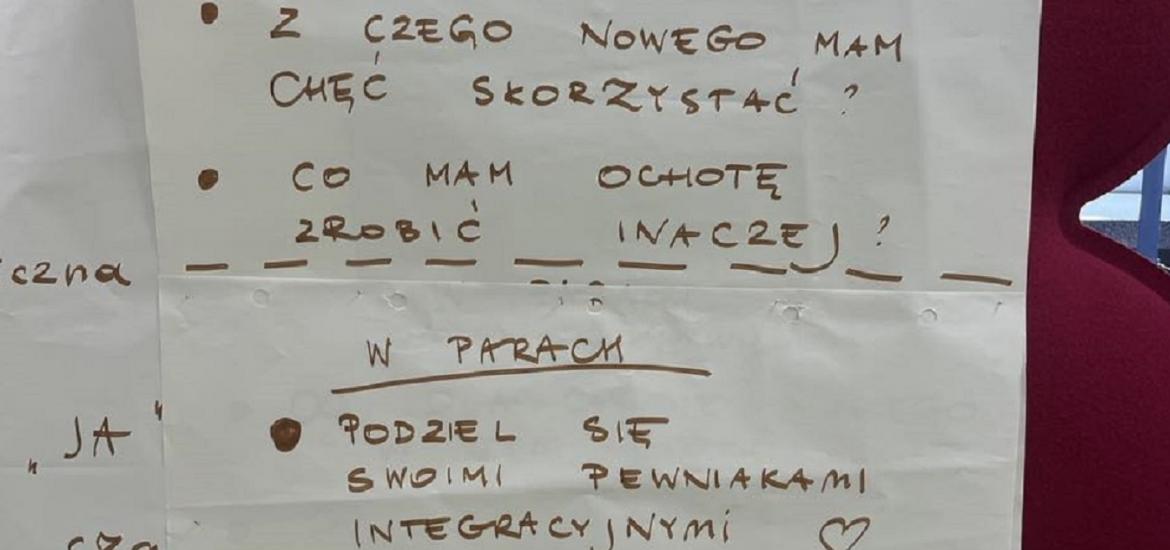 • Z CZEGO NOWEGO MAM
CHĘĆ SKORZYSTAĆ ?
• CO MAM OCHOTĘ
ZROBIĆ INACZEJ ?
czna
W PARACH
• PODZIEL SIĘ
SWOIMI PEWNIAKAMI
INTEGRACYJNYMI ♡
„JA"